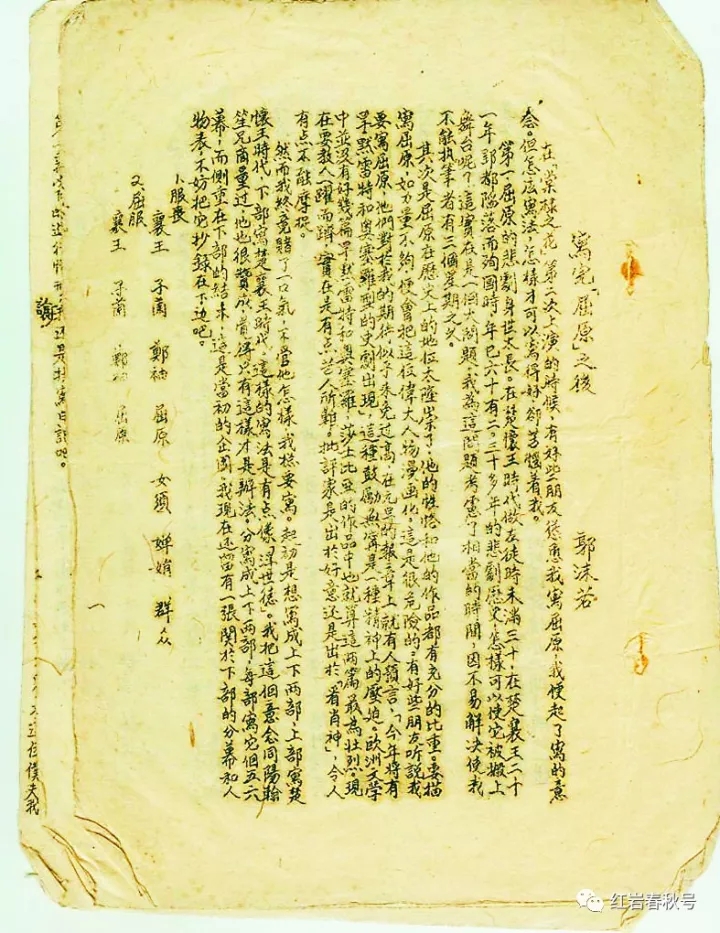 寫完「屈原」之後
郭沫若
在「棠棣之花」第二次上演的時候，有好些朋友慫恿我寫屈原，我便起了寫的意
念。但怎么寫法，怎樣才可以寫得好，卻苦惱着我。
第一屈原的悲劇身世太長。在楚懷王時代做左徒時未滿三十，在楚襄王二十
一年郢都陷落而殉國時，年已六十有二。三十多年的悲劇歷史，怎樣可以使它被搬上
舞台呢？這實在是一個大問題。我為這問題考慮了相當的時間，因不易解決使我
不能執筆者有三個星期之久。
其次是屈原在歷史上的地位太隆崇了，他的性格和他的作品都有充分的比重。要描
寫屈原，如力量不夠，便會把這位偉大人物漫画化，這是很危險的。有好些朋友听說我
要寫屈原，他們對於我的期待似乎未免过高，在元旦的報章上就有人預言，「今年將有
罕默雷特和奧塞羅型的史劇出現」。這種鼓勵無寧是一種精神上的壓迫。欧洲文學
中並沒有好幾篇罕默雷特和奧塞羅，莎士比亞的作品中也就算這兩篇最為壯烈。現
在要敎人一躍而躋，實在是有点苦人所難。批評家是出於好意還是出於「看肖神」，令人
有点不能摩捉。
然而我終竟賭了一口氣，不管他怎樣，我總要寫。起初是想寫成上下兩部，上部寫楚
懷王時代，下部寫楚襄王時代，這樣的寫法是有点像「浮世德」。我把這個意念同陽翰
笙兄商量过，他也很贊成，覺得只有這樣才是辦法。分寫成上下兩部，每部寫它個五六
幕，而側重在下部的結末，這是當初的企圖。我現在还留有一張関於下部的分幕和人
物表，不妨把它抄錄在下边吧。
1. 服喪
襄王 子蘭 鄭袖 屈原 女須 嬋娟 群众
2. 屈服
襄王 子蘭 鄭袖 屈原
一
红岩春秋号